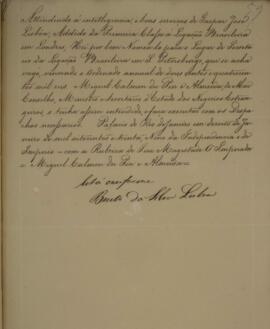 Attendendo á intelligencia, e bons serviços de Gaspar José
Lisboa, Addido da Primeira Classe á Legação Brasileira
em Londres, Hei por bem Nomea-lo para o Lugar de Secreta-
rio da Legação Brasileira em S. Petersburgo, que se acha
vago, vencendo o Ordenado annual de dous contos e quatrocentos
mil reis. Miguel Calmon du Pin e Almeida, do Meu
Conselho, Ministro e Secretario d'Estado dos Negocios Estran-
geiros, o tenha assim entendido, e faça executar com os Despa-
chos necessarios. Palacio do Rio de Janeiro em de
Janeiro de mil oitocentos e trinta, Nono da Independencia e do
Imperio = com a Rubrica de Sua Magestade O Imperador
= Miguel Calmon du Pin e Almeida =
Está conforme
Bento da Silva Lisboa